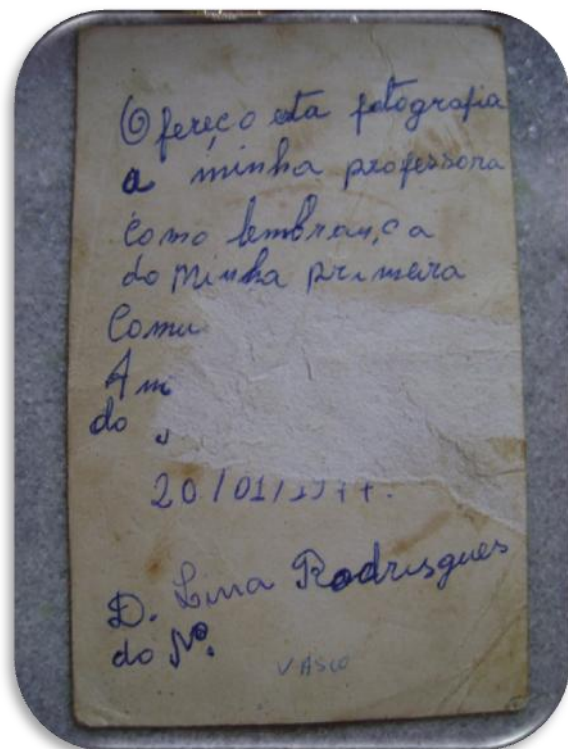 Ofereço esta fotografia
a minha professora
como lembrança
do minha primeira
Comu
Am
do
20/01/1977.
D. Lina Rodrisgues
do Nº.
VASCO